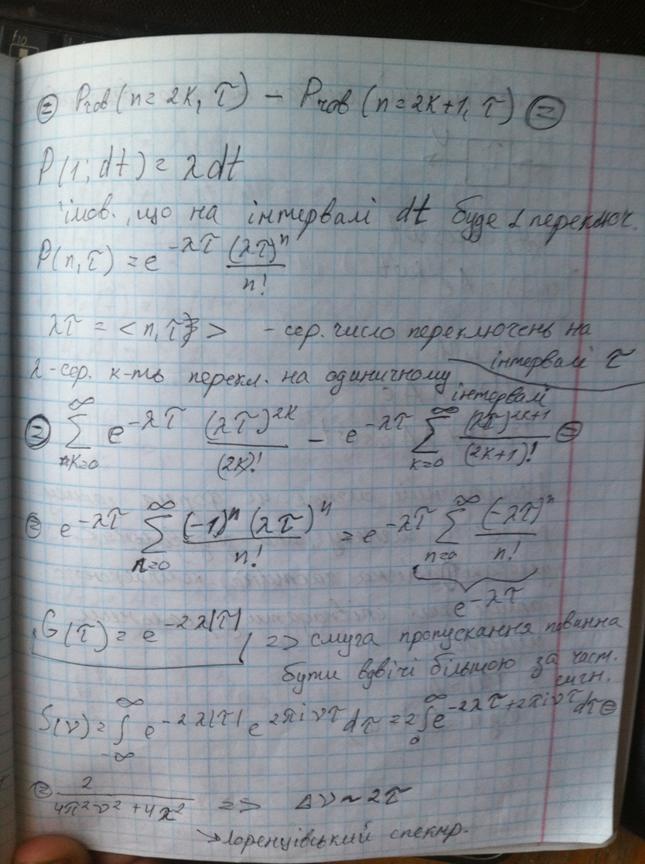 = Prob (n=2k, τ) − Prob (n=2k+1, τ) =
P(1; dt) = λdt
імов., що на інтервалі dt буде 1 переключ.
P(n,τ) = e^{-λτ} (λτ)^n / n!
λτ = <n,τ> - сер. число переключень на інтервалі τ
λ - сер. к-ть перекл. на одиничному інтервалі
= ∑_{k=0}^{∞} e^{-λτ} (λτ)^{2k} / (2k)! − e^{-λτ} ∑_{k=0}^{∞} (λτ)^{2k+1} / (2k+1)! =
= e^{-λτ} ∑_{n=0}^{∞} (-1)^n (λτ)^n / n! = e^{-λτ} ∑_{n=0}^{∞} (-λτ)^n / n!
e^{-λτ}
G(τ) = e^{-2λ|τ|} => смуга пропускання повинна
бути вдвічі більшою за част. сигн.
S(ν) = ∫_{-∞}^{∞} e^{-2λ|τ|} e^{2πiντ} dτ = 2∫_{0}^{∞} e^{-2λτ+2πiντ} dτ =
= 2 / 4π²ν² + 4λ² => Δν ~ 2τ
→ Лоренцівський спектр.